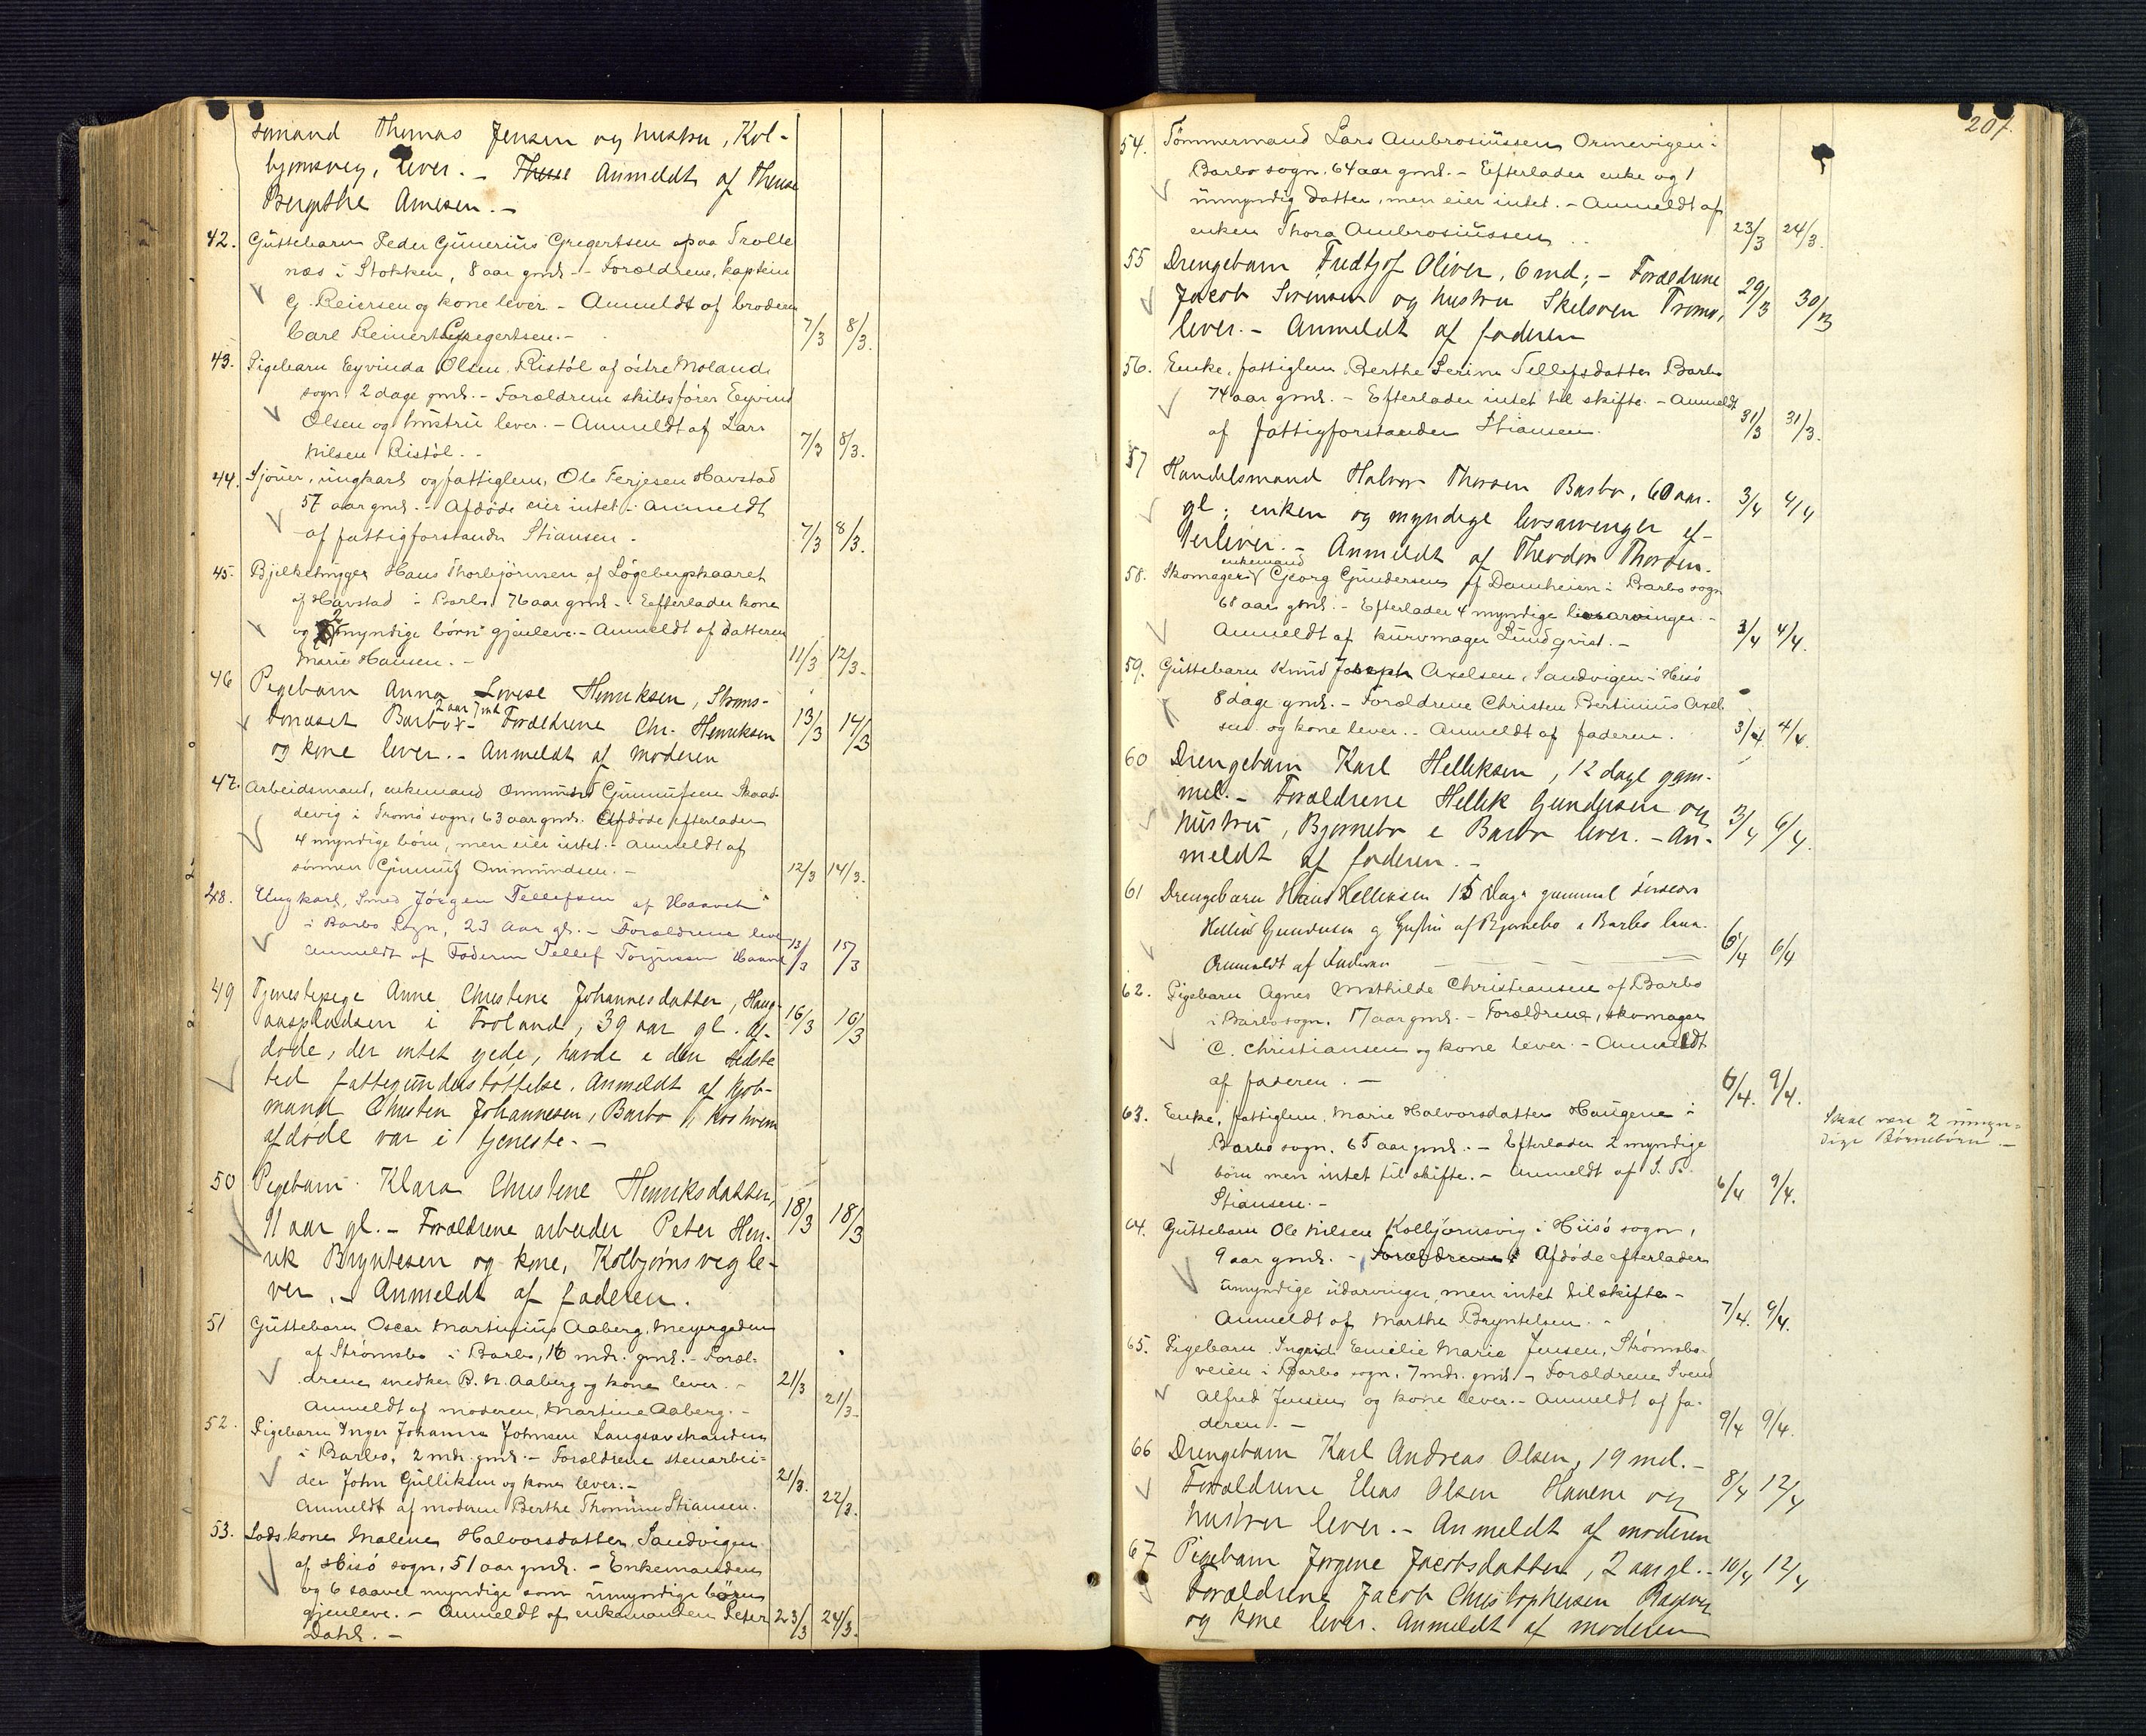 smand Thomas Jensen og hustru, Kol-
bjørnsvig, lever. – These Anmeldt af Therese
Bergithe Arnesen. –
42. Guttebarn Peder Gunerius Gregertsen opaa Trolle
næs i Stokken, 8 aar gml. – Forældrene, kaptein
G. Reiersen og kone lever. – Anmeldt af broderen
Carl Reinert Gregertsen. – 7/3 8/3.
43. Pigebarn Eyvinda Olsen, Ristøl af østre Molands
sogn, 2 dage gml. – Forældrene skibsfører Eyvind
Olsen og hustru lever. – Anmeldt af Lars
Nilsen Ristøl. – 7/3 8/3.
44. Sjouer, ungkarl og fattiglem, Ole Terjesen Havstad
57 aar gml. – Afdøde eier intet. – Anmeldt
af fattigforstander Stiansen. 7/3 8/3.
45. Bjelkehugger Hans Thorbjørnsen af Løgebergskaaret
af Havstad i Barbo, 76 aar gml. – Efterlader kone
og 2 myndige børn gjenlever. – Anmeldt af datteren
Marie Hansen. – 11/3 12/3.
46 Pigebarn Anna Lovise Henriksen, Strøms-
2 aar 7 md
bonæset Barbo. – Forældrene Chr. Henriksen 13/3 14/3
og kone lever. – Anmeldt af moderen
47. Arbeidsmand, enkemand Ommund Gunnufsen Skaad-
devig i Tromø sogn, 63 aar gml. Afdøde efterlader
4 myndige børn, men eier intet. – Anmeldt af
sønnen Gunnuf Ommundsen. – 12/3 14/3.
48. Ungkarl, Smed Jørgen Tellefsen af Haavet
i Barbo Sogn, 23 Aar gl. – Forældrene lever
Anmeldt af Faderen Tellef Torjussen Haavet 13/3 15/3
49 Tjenestepige Anne Christine Johannesdatter, Haug-
aaspladsen i Froland, 39 aar gl. Af- 16/3 16/3
døde, der intet eiede, havde i den sidste
tid fattigunderstøttelse. Anmeldt af kjøb-
mand Christen Johannesen, Barbo, hos hvem
afdøde var i tjeneste. –
50 Pigebarn Klara Christine Henriksdatter,
11 aar gl. – Forældrene arbeider Peter Hen- 18/3 18/3
rik Bryntesen og kone, Kolbjørnsvig le-
ver. – Anmeldt af faderen.
51 Guttebarn Oscar Martinius Aaberg, Meyergaden
af Strømsbo i Barbo, 16 mdr. gml. – Foræl-
drene snedker B. N. Aaberg og kone lever. – 21/3
Anmeldt af moderen, Martine Aaberg. – 21/3.
52. Pigebarn Inger Johanne Johnsen Langsævstranden
i Barbo, 2 mdr. gml. – Forældrene stenarbei-
der John Gulliksen og kone lever. – 21/3.
Anmeldt af moderen Berthe Thomine Stiansen. 22/3.
53. Lods kone Malene Halvorsdatter, Sandvigen
af Hisø sogn, 51 aar gml. – Enkemanden
og 6 saavel myndige som umyndige børn
gjenlever. – Anmeldt af enkemanden Peter 23/3 24/3.
Dahl. –
207.
54. Tømmermand Lars Ambrosiussen Ormevigen i
Barbo sogn, 64 aar gml. – Efterlader enke og 1
umyndig datter, men eier intet. – Anmeldt af
enken Thora Ambrosiussen. 23/3 24/3.
55 Drengebarn Fredtjof Oliver, 6 md; – Forældrene
Jacob Sørensen og hustru Skilsøen Tromø, 29/3 30/3
lever. – Anmeldt af faderen
56. Enke, fattiglem, Berthe Serine Tellefsdatter Barbo
74 aar gml. – Efterlader intet til skifte. – Anmeldt
af fattigforstander Stiansen. 31/3 31/3.
57 Handelsmand Halvor Thorsen Barbo, 60 aar. 3/4 4/4
gl; enken og myndige livsarvinger ef-
terlever. – Anmeldt af Theodor Thorsen.
enkemand
58. Skomager Georg Gundersen af Damheien i Barbo sogn
68 aar gml. – Efterlader 4 myndige livsarvinger. –
Anmeldt af kurvmager Lundqvist. – 3/4 4/4.
59. Guttebarn Knud Joseph Axelsen, Sandvigen i Hisø
8 dage gml. – Forældrene Christen Bertinius Axel
sen og kone lever. – Anmeldt af faderen. 3/4 4/4.
60 Drengebarn Karl Helliksen, 12 dage gam-
mel. – Forældrene Hellik Gundersen og 3/4 6/4.
hustru, Bjørnebo i Barbo lever. – An-
meldt af faderen. –
61 Drengebarn Hans Helliksen 15 Dage gammel
Hellik Gundersen og Hustru af Bjørnebo i Barbo lever.
Anmeldt af Faderen 6/4 6/4
62. Pigebarn Agnes Mathilde Christiansen af Barbo
i Barbo sogn, 17 aar gml. – Forældrene, skomager
C. Christiansen og kone lever. – Anmeldt
af faderen. – 6/4. 9/4.
63. Enke, fattiglem, Marie Halvorsdatter Haugene i
Barbo sogn, 65 aar gml. – Efterlader 2 myndige
børn men intet til skifte. – Anmeldt af S. Tr.
Stiansen. – 6/4 9/4.
Skal være 2 umyn-
dige Børnebørn. –
64. Guttebarn Ole Nilsen Kolbjørnsvig i Hisø sogn,
9 aar gml. – Forældrene Afdøde efterlader
umyndige udarvinger, men intet til skifte –
Anmeldt af Marthe Bryntelsen. 7/4. 9/4.
65. Pigebarn Ingrid Emilie Marie Jensen, Strømsbo-
veien i Barbo sogn, 7 mdr. gml. – Forældrene Svend
Alfred Jensen og kone lever. – Anmeldt af fa-
deren. – 9/4 9/4.
66 Drengebarn Karl Andreas Olsen, 19 md. –
Forældrene Elias Olsen og 8/4 12/4
hustru lever. – Anmeldt af moderen
67 Pigebarn Jørgine Jacobsdatter, 2 aar gl. – 10/4 12/4
Forældrene Jacob Christophersen
og kone lever. Anmeldt af moderen